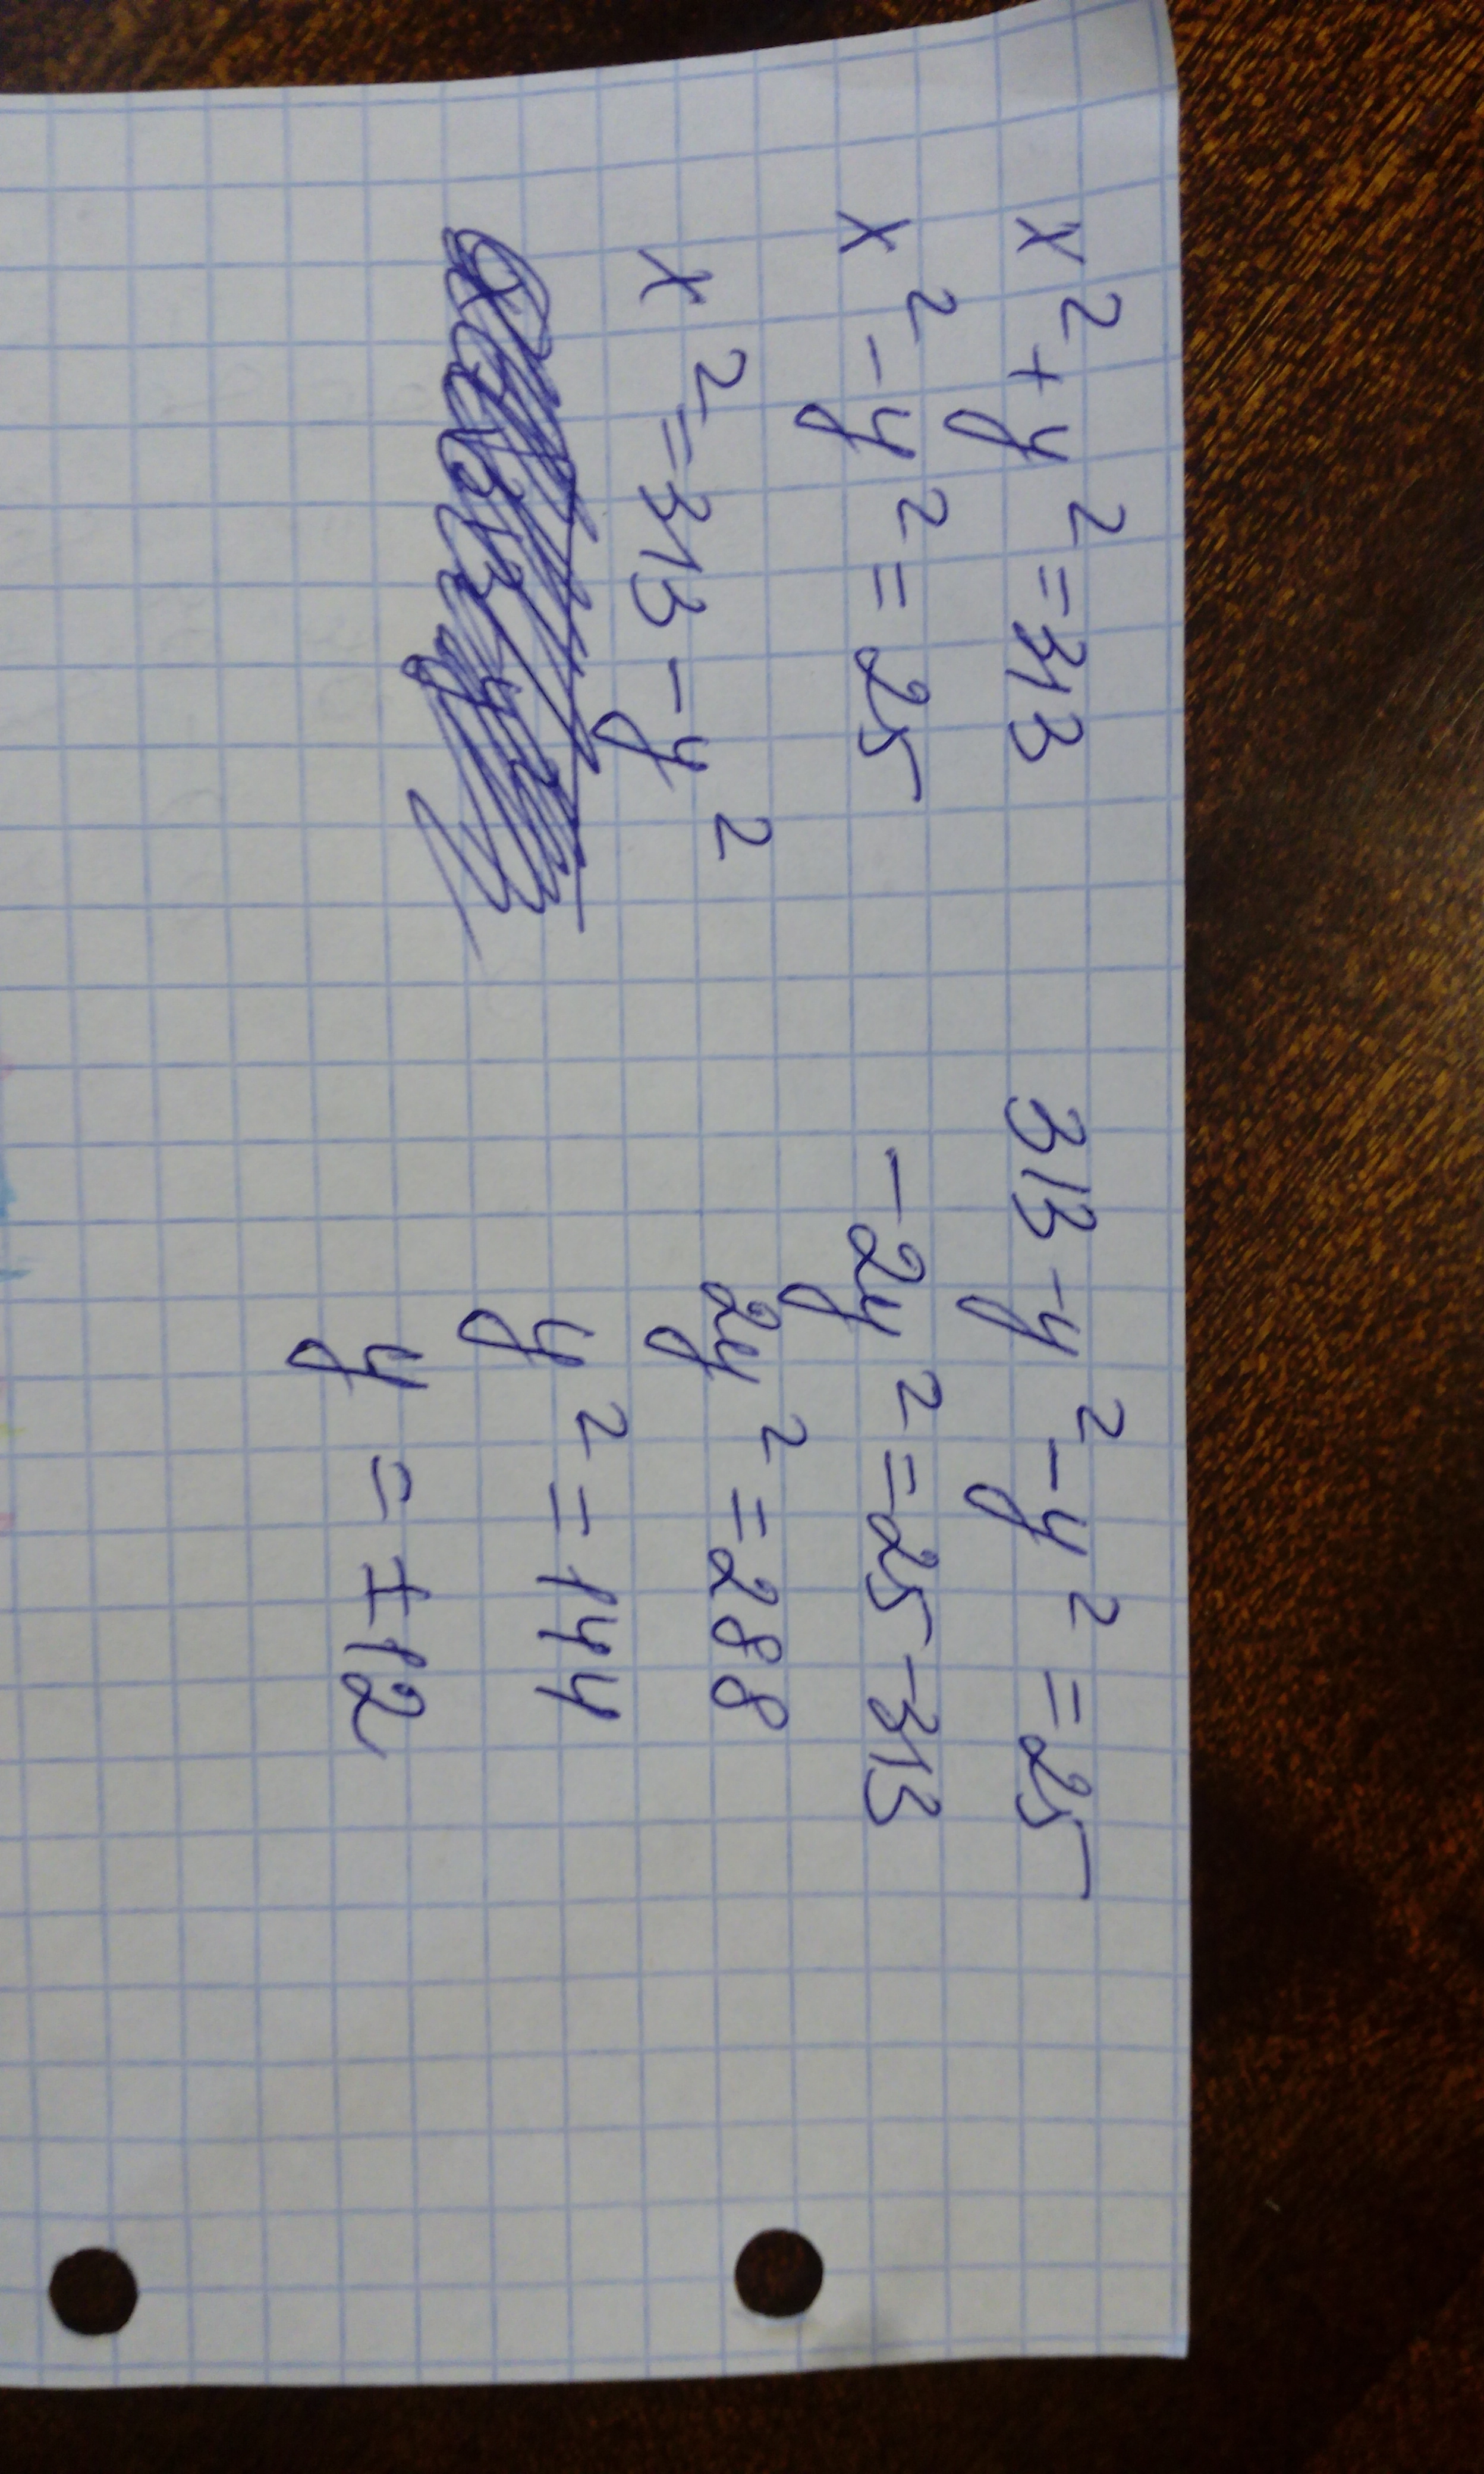 x² + y² = 313
x² - y² = 25
x² = 313 - y²
313 - y² - y² = 25
-2y² = 25 - 313
2y² = 288
y² = 144
y = ±12